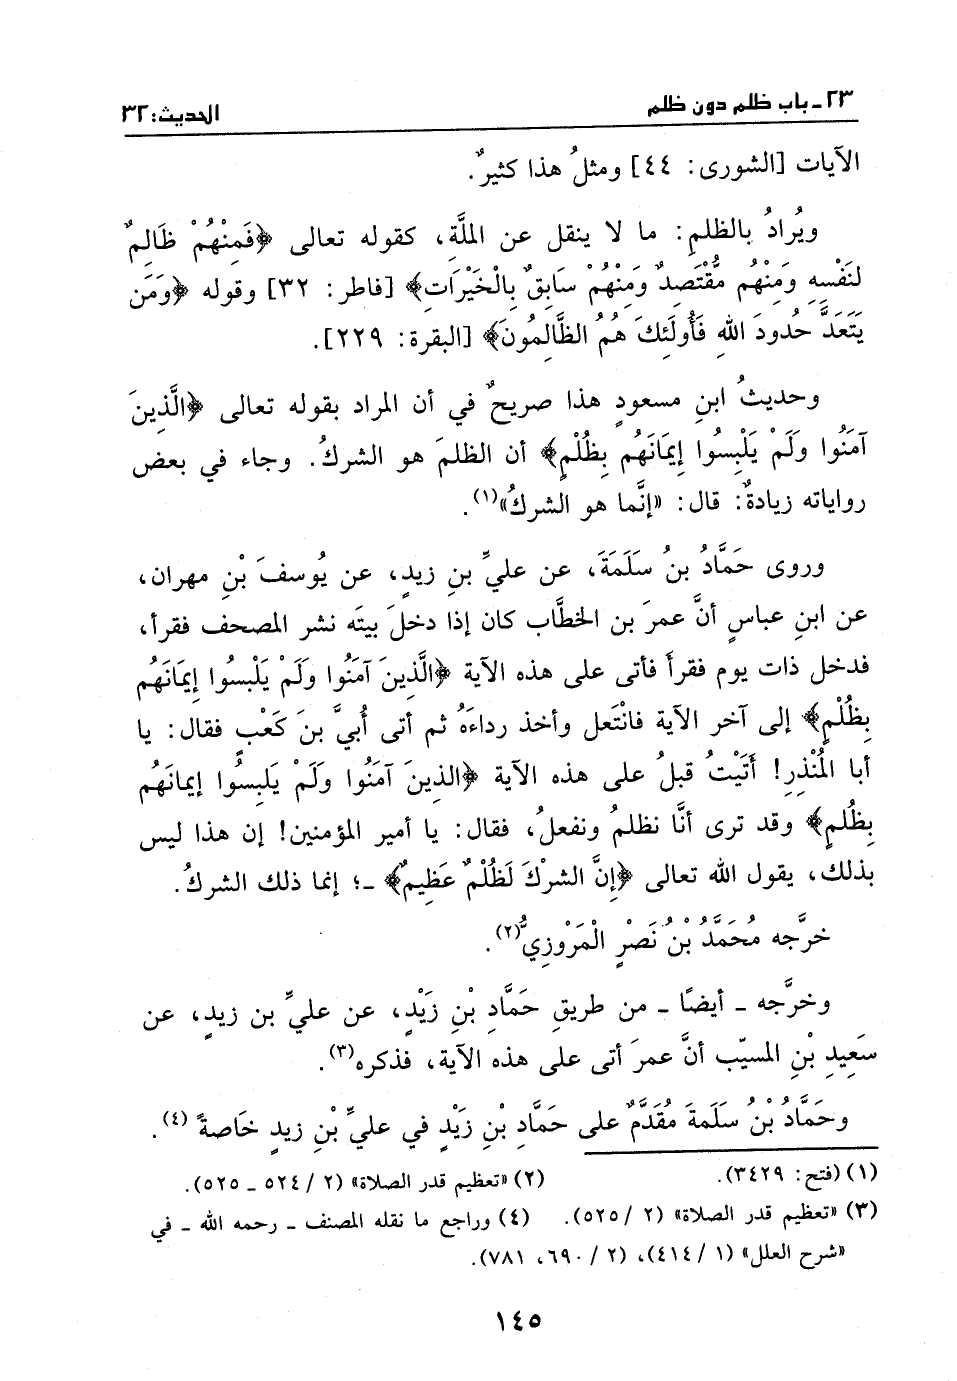 ٢٣ـ باب ظلم دون ظلم
الحديث: ٣٢
الآيات [الشورى: ٤٤] ومثلُ هذا كثيرٌ.
ويُرادُ بالظلمِ: ما لا ينقل عن الملَّةِ، كقوله تعالى ﴿فَمِنْهُمْ ظَالِمٌ
لنَفْسِهِ وَمِنْهُم مُّقْتَصِدٌ وَمِنْهُمْ سَابِقٌ بِالْخَيْرَاتِ﴾ [فاطر: ٣٢] وقوله ﴿وَمَن
يَتَعَدَّ حُدودَ اللهِ فَأُولَئِكَ هُمُ الظَّالِمُونَ﴾ [البقرة: ٢٢٩].
وحديثُ ابنِ مسعودٍ هذا صريحٌ في أن المراد بقوله تعالى ﴿الَّذِينَ
آمَنُوا وَلَمْ يَلْبِسُوا إِيمَانَهُم بِظُلْمٍ﴾ أن الظلمَ هو الشركُ. وجاء في بعض
رواياته زيادةٌ: قال: «إنَّما هو الشركُ»(١).
وروى حَمَّادُ بنُ سَلَمَةَ، عن عليِّ بنِ زيدٍ، عن يُوسفَ بْنِ مهران،
عن ابنِ عباسٍ أنَّ عمرَ بن الخطَّاب كان إذا دخلَ بيتَه نشر المصحف فقرأ،
فدخل ذات يوم فقرأَ فأتى على هذه الآية ﴿الَّذِينَ آمَنُوا وَلَمْ يَلْبِسُوا إِيمَانَهُم
بِظُلْمٍ﴾ إلى آخر الآية فانْتَعل وأخذ رداءَهُ ثم أتى أُبيَّ بنَ كَعْبٍ فقال: يا
أبا المُنْذِرِ! أَتَيْتُ قبلُ على هذه الآية ﴿الذينَ آمَنُوا وَلَمْ يَلبِسُوا إيمانَهُم
بِظُلمٍ﴾ وقد ترى أنَّا نظلمُ ونفعلُ، فقال: يا أمير المؤمنين! إن هذا ليس
بذلك، يقول الله تعالى ﴿إِنَّ الشرْكَ لَظُلْمٌ عَظِيمٌ﴾ ـ؛ إنما ذلك الشركُ.
خرَّجه مُحَمَّدُ بْنُ نَصْرٍ الْمَرْوَزِيُّ(٢).
وخرَّجه ـ أيضًا ـ من طريقِ حَمَّادِ بْنِ زَيْدٍ، عن عليِّ بن زيدٍ، عن
سَعِيدِ بْنِ المسيّب أنَّ عمرَ أتى على هذه الآية، فذكره(٣).
وحَمَّادُ بْنُ سَلَمةَ مُقَدَّمٌ على حَمَّادِ بْنِ زَيْدٍ في عليِّ بْنِ زيدٍ خَاصةً (٤).
(١) (فتح: ٣٤٢٩). (٢) «تعظيم قدر الصلاة» (٢/ ٥٢٤ ـ ٥٢٥).
(٣) «تعظيم قدر الصلاة» (٢/ ٥٢٥). (٤) وراجع ما نقله المصنف ـ رحمه الله ـ في
«شرح العلل» (١/ ٤١٤)، (٢/ ٦٩٠، ٧٨١).
١٤٥